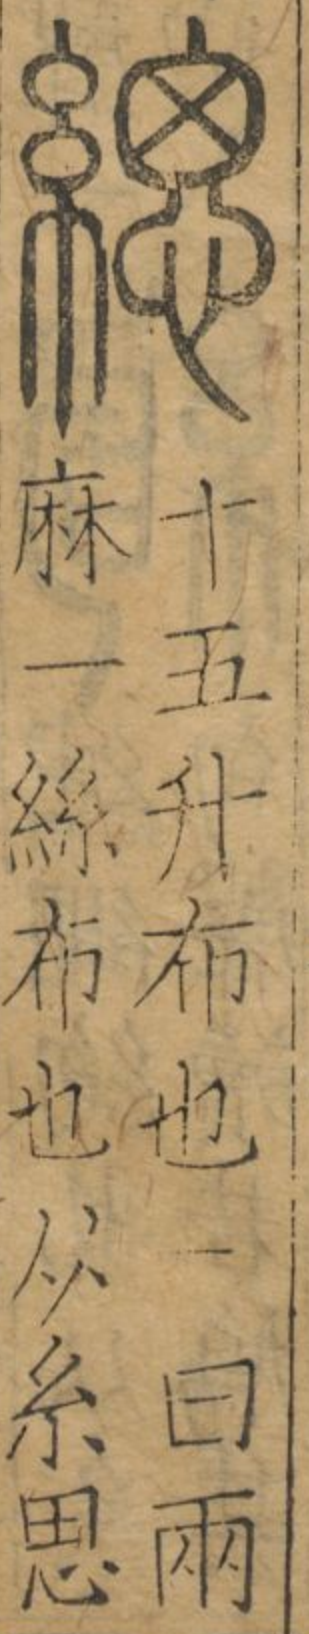 緦
十五升布也一曰兩
麻一絲布也从糸思